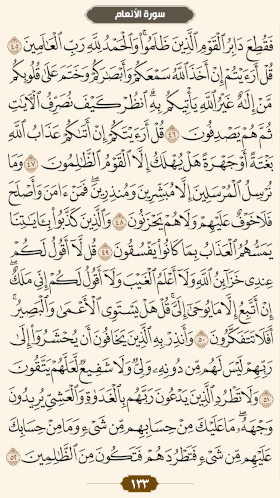 سورة الأنعام
فَقُطِعَ دَابِرُ ٱلْقَوْمِ ٱلَّذِينَ ظَلَمُوا۟ۚ وَٱلْحَمْدُ لِلَّهِ رَبِّ ٱلْعَٰلَمِينَ ٤٥
قُلْ أَرَءَيْتُمْ إِنْ أَخَذَ ٱللَّهُ سَمْعَكُمْ وَأَبْصَٰرَكُمْ وَخَتَمَ عَلَىٰ قُلُوبِكُم
مَّنْ إِلَٰهٌ غَيْرُ ٱللَّهِ يَأْتِيكُم بِهِۗ ٱنظُرْ كَيْفَ نُصَرِّفُ ٱلْءَايَٰتِ
ثُمَّ هُمْ يَصْدِفُونَ ٤٦ قُلْ أَرَءَيْتَكُمْ إِنْ أَتَىٰكُمْ عَذَابُ ٱللَّهِ
بَغْتَةً أَوْ جَهْرَةً هَلْ يُهْلَكُ إِلَّا ٱلْقَوْمُ ٱلظَّٰلِمُونَ ٤٧ وَمَا
نُرْسِلُ ٱلْمُرْسَلِينَ إِلَّا مُبَشِّرِينَ وَمُنذِرِينَۖ فَمَنْ ءَامَنَ وَأَصْلَحَ
فَلَا خَوْفٌ عَلَيْهِمْ وَلَا هُمْ يَحْزَنُونَ ٤٨ وَٱلَّذِينَ كَذَّبُوا۟ بِـَٔايَٰتِنَا
يَمَسُّهُمُ ٱلْعَذَابُ بِمَا كَانُوا۟ يَفْسُقُونَ ٤٩ قُل لَّآ أَقُولُ لَكُمْ
عِندِى خَزَآئِنُ ٱللَّهِ وَلَآ أَعْلَمُ ٱلْغَيْبَ وَلَآ أَقُولُ لَكُمْ إِنِّى مَلَكٌۖ
إِنْ أَتَّبِعُ إِلَّا مَا يُوحَىٰٓ إِلَىَّۚ قُلْ هَلْ يَسْتَوِى ٱلْأَعْمَىٰ وَٱلْبَصِيرُۚ
أَفَلَا تَتَفَكَّرُونَ ٥٠ وَأَنذِرْ بِهِ ٱلَّذِينَ يَخَافُونَ أَن يُحْشَرُوٓا۟ إِلَىٰ
رَبِّهِمْۙ لَيْسَ لَهُم مِّن دُونِهِۦ وَلِىٌّ وَلَا شَفِيعٌ لَّعَلَّهُمْ يَتَّقُونَ
٥١ وَلَا تَطْرُدِ ٱلَّذِينَ يَدْعُونَ رَبَّهُم بِٱلْغَدَوٰةِ وَٱلْعَشِىِّ يُرِيدُونَ
وَجْهَهُۥۖ مَا عَلَيْكَ مِنْ حِسَابِهِم مِّن شَىْءٍ وَمَا مِنْ حِسَابِكَ
عَلَيْهِم مِّن شَىْءٍ فَتَطْرُدَهُمْ فَتَكُونَ مِنَ ٱلظَّٰلِمِينَ ٥٢
١٣٣